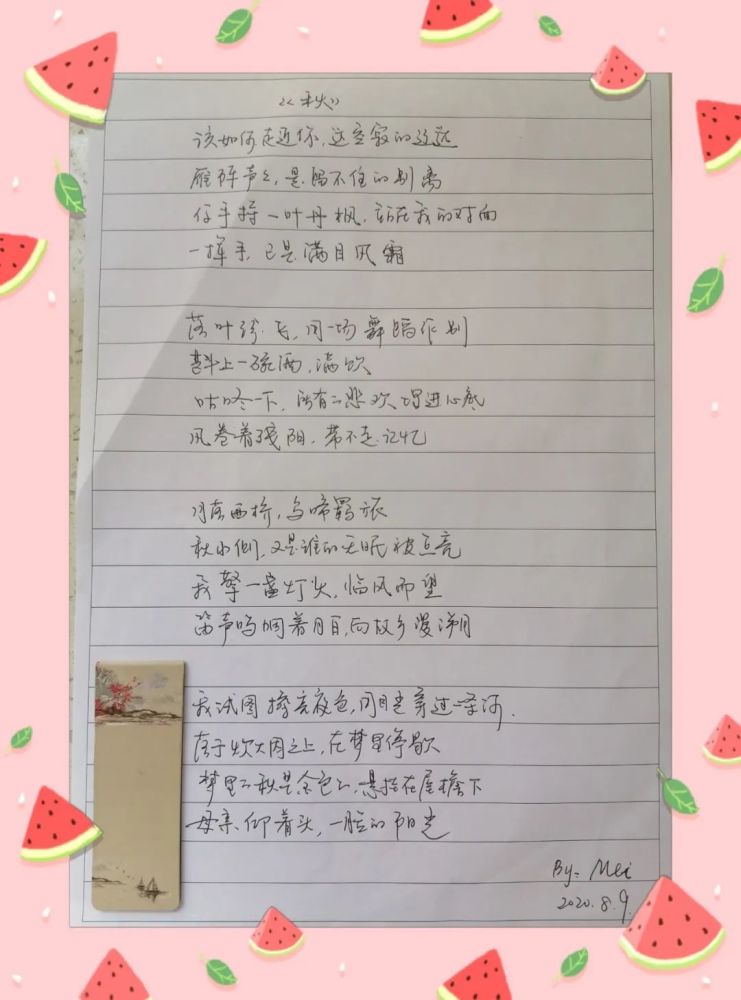 《秋》
该如何走近你，这空寂的辽远
雁阵声声，是留不住的别离
你手持一叶丹枫，站在我的对面
一挥手，已是满目风霜
落叶纷飞，用一场舞蹈作别
斟上一碗酒，满饮
咕咚一下，所有的悲欢滑进心底
风卷着残阳，带不走记忆
月落西桥，乌啼羁旅
秋水侧，又是谁的无眠被点亮
我擎一盏灯火，临风而望
笛声呜咽着月白，向故乡漫溯
我试图擦亮夜色，用目光穿过一条河
落于炊烟之上，在梦里停歇
梦里的秋是金色的，悬挂在屋檐下
母亲仰着头，一脸的阳光
By: Mei
2020.8.9